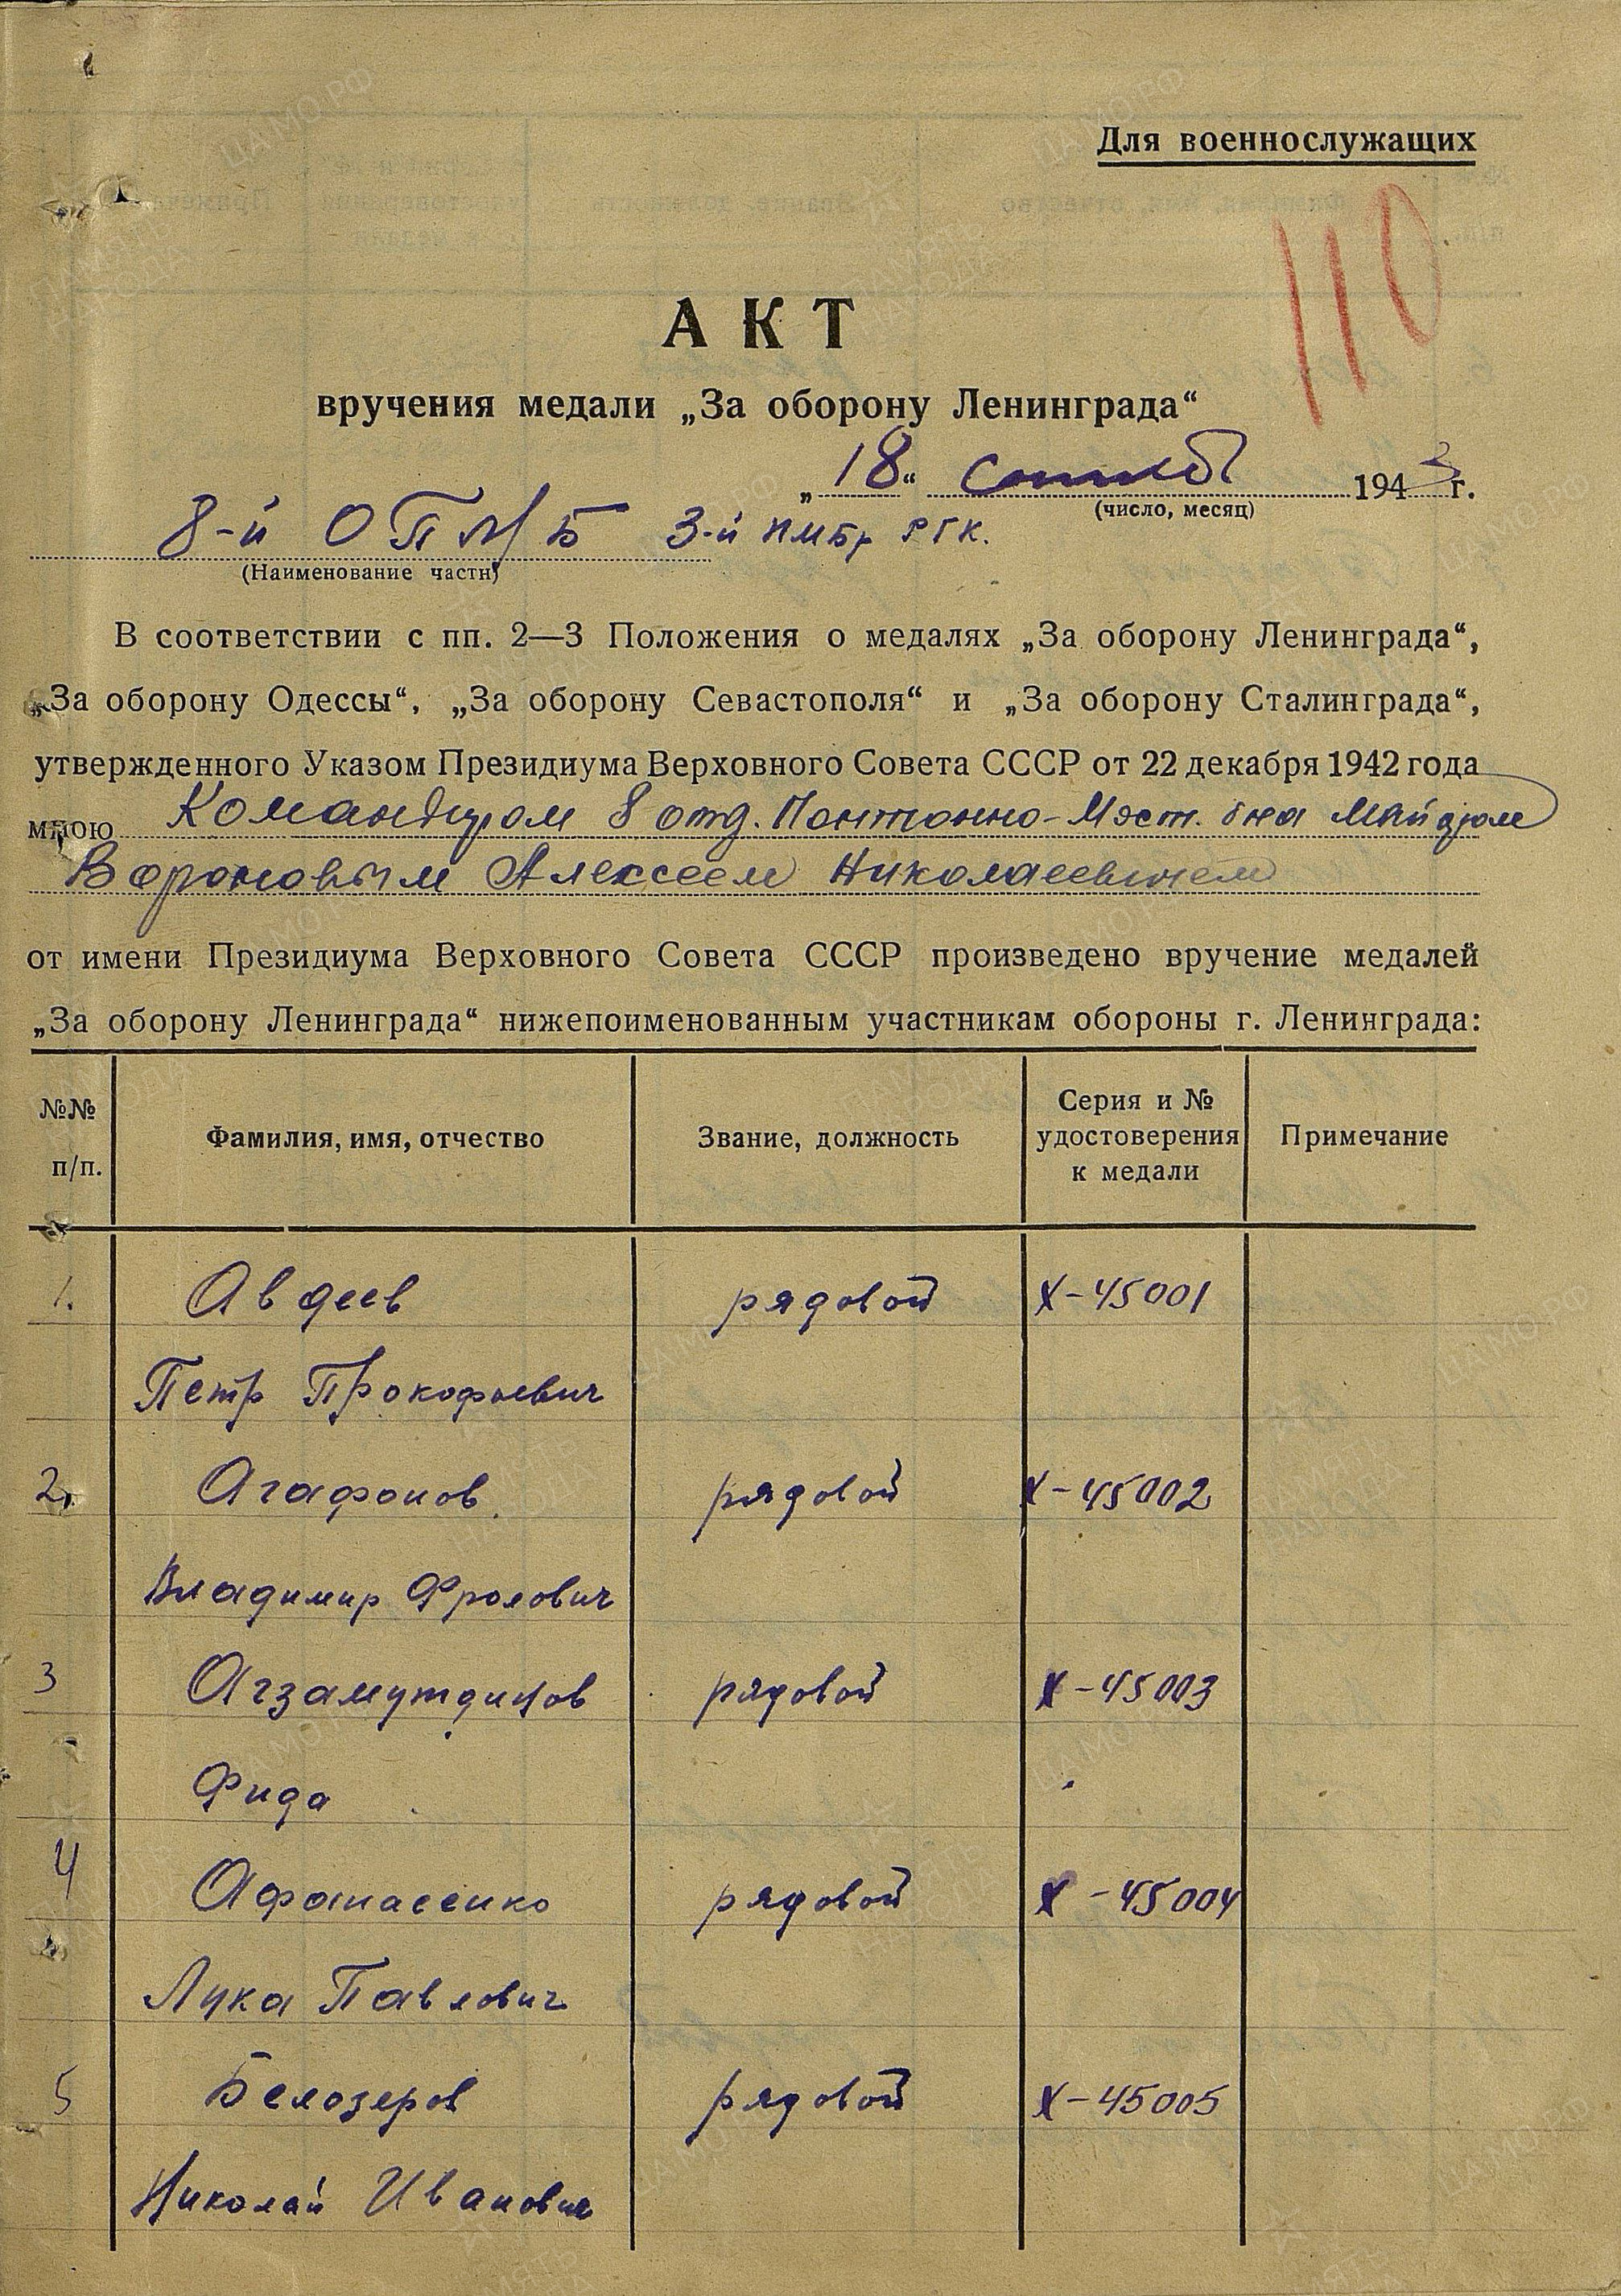 Для военнослужащих
110
АКТ
вручения медали „За оборону Ленинграда“
„18“ 1943 г.
(число, месяц)
8-й ОПМБ 3-й пмбр РГК.
(Наименование части)
В соответствии с пп. 2—3 Положения о медалях „За оборону Ленинграда“,
„За оборону Одессы“, „За оборону Севастополя“ и „За оборону Сталинграда“,
утвержденного Указом Президиума Верховного Совета СССР от 22 декабря 1942 года
мною Командиром 8 отд. Понтонно-Мост. б-на Майором
Вороновым Алексеем Николаевичем
от имени Президиума Верховного Совета СССР произведено вручение медалей
„За оборону Ленинграда“ нижепоименованным участникам обороны г. Ленинграда:
№№ п/п. Фамилия, имя, отчество Звание, должность Серия и № удостоверения к медали Примечание
1. Авдеев рядовой Х-45001
Петр Прокофьевич
2. Агафонов рядовой Х-45002
Владимир Фролович
3 Агзамутдинов рядовой Х-45003
Фида
4 Афанасенко рядовой Х-45004
Лука Павлович
5 Белозеров рядовой Х-45005
Николай Иванович